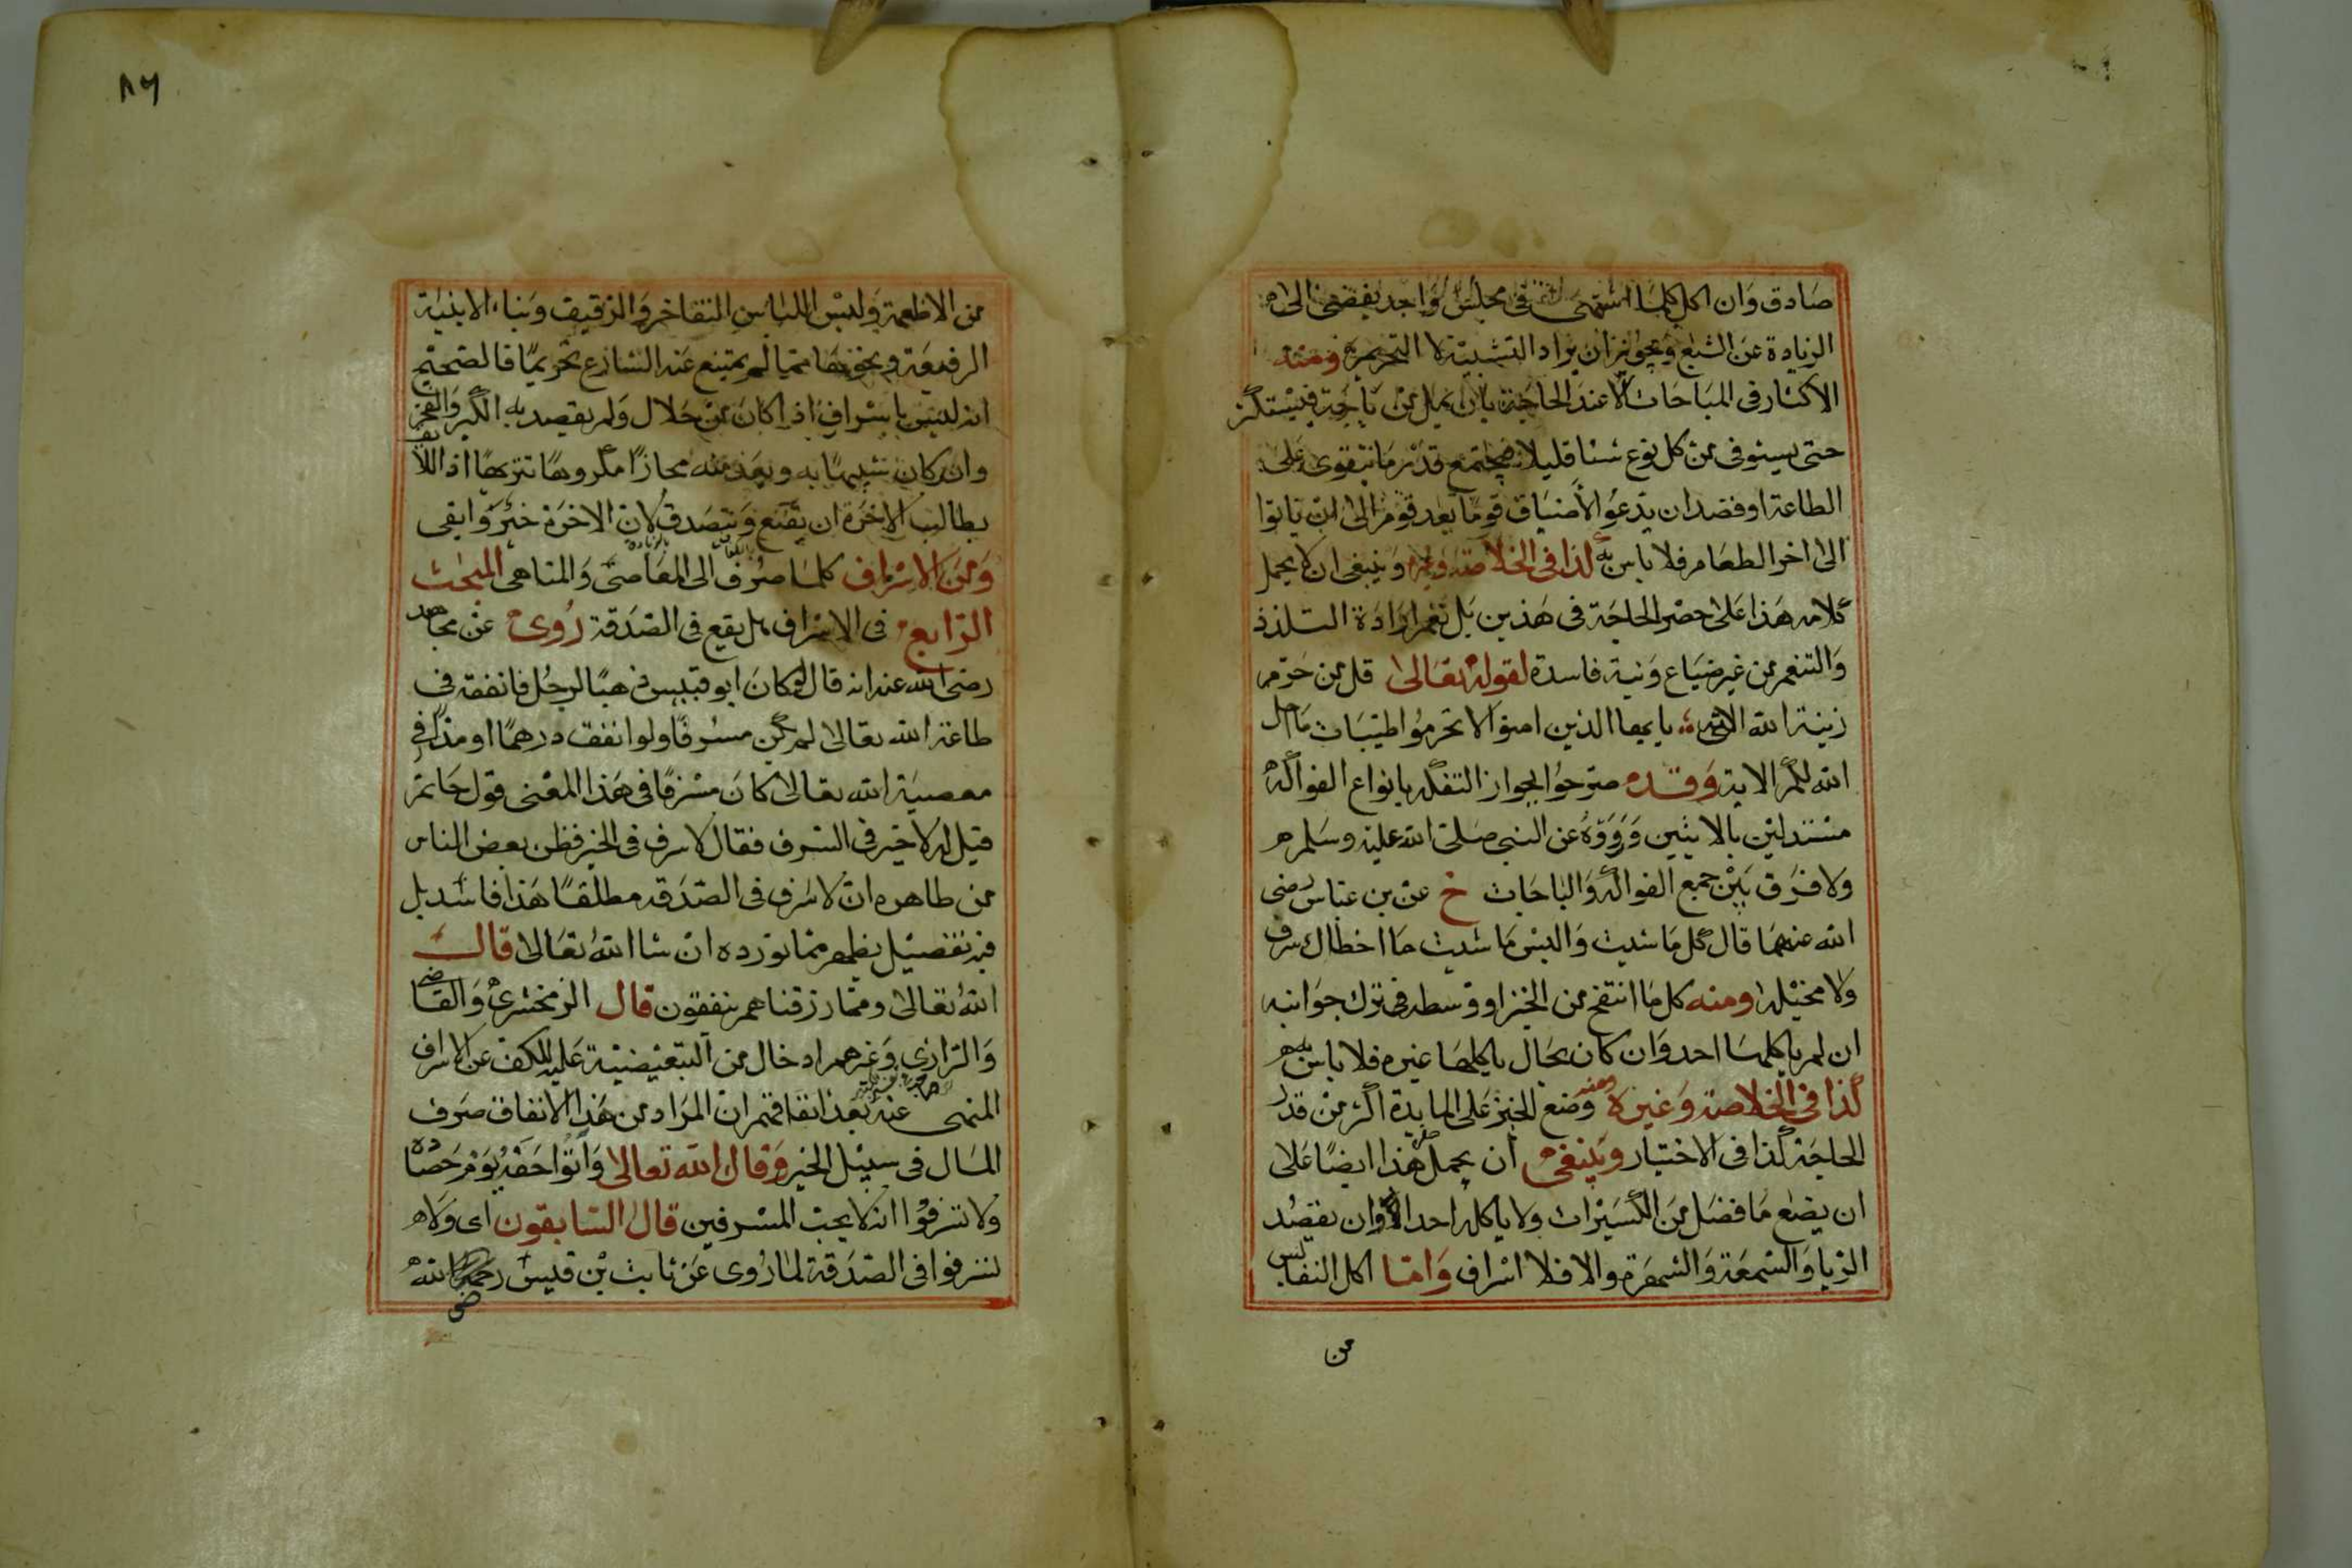 صادق وان اكل كلما اشتهى في مجلس واحد يفضى الى
الزيادة عن الشبع ويجوز ان يراد التشبيه لا التحريم ومنه
الاكثار في المباحات الا عند الحاجة بان يمل من باجة فيستكثر
حتى يستوفى من كل نوع شئا قليلا فيجتمع قدر ما يتقوى على
الطاعة او قصد ان يدعو الاضياف قوما بعد قوم الى ان ياتوا
الى اخر الطعام فلا باس به كذا في الخلاصة وغيره وينبغى ان لا يحمل
كلامه هذا على حصر الحاجة في هذين بل تعم ارادة التلذذ
والتنعم من غير ضياع ونية فاسدة لقوله تعالى قل من حرم
زينة الله الاية يايها الذين امنوا لا تحرموا طيبات ما احل
الله لكم الاية وقد صرحوا بجواز التفكه بانواع الفواكه
مستدلين بالايتين ورووه عن النبى صلى الله عليه وسلم
ولا فرق بين جمع الفواكه والباحات خ عن بن عباس رضى
الله عنهما قال كل ما شيت والبس ما شيت ما اخطاك سرف
ولا مخيلة ومنه كل ما انتفخ من الخبز او وسطه في ترك جوانبه
ان لم ياكلها احد وان كان بحال ياكلها غيره فلا باس به
كذا في الخلاصة وغيره ومنه وضع الخبز على المايدة اكثر من قدر
الحاجة كذا في الاختيار وينبغى ان يحمل هذا ايضا على
ان يضع ما فضل من الكسيرات ولا ياكله احد او ان يقصد
الريا والسمعة والشهرة والا فلا اسراف واما اكل النفايس
من
٨٦
من الاطعمة ولبس اللباس التفاخر والرقيق وبناء الابنية
الرفيعة ونحوها مما لم يمتنع عند الشارع تحريما فالصحيح
انه ليس باسراف اذا كان من حلال ولم يقصد به الكبر والفخر
وان كان شبيها به ويعد منه مجازا مكروها تنزيها اذ اللايق
بطالب الاخرة ان يقنع ويتصدق لان الاخرة خير وابقى
ومن الاسراف كلما صرف الى المعاصى والمناهى المبحث
الرابع في الاسراف هل يقع في الصدقة روى عن مجاهد
رضى الله عنه انه قال لو كان ابو قبيس ذهبا لرجل فانفقه في
طاعة الله تعالى لم يكن مسرفا ولو انفق درهما او مدا في
معصية الله تعالى كان مسرفا في هذا المعنى قول حاتم
قيل له لا خير في السرف فقال لا سرف في الخير فظن بعض الناس
من طاهره ان لا سرف في الصدقة مطلقا هذا فاسد بل
فيه تفصيل يظهر مما نورده ان شا الله تعالى قال
الله تعالى ومما رزقناهم ينفقون قال الزمخشرى والقاضى
والرازى وغيرهم ادخال من التبعيضية عليه للكف عن الاسراف
المنهى عنه بعد اتفاقهم ان المراد من هذا الانفاق صرف
المال في سبيل الخير وقال الله تعالى واتوا حقه يوم حصاده
ولا تسرفوا انه لا يحب المسرفين قال السابقون اى ولا
تسرفوا في الصدقة لما روى عن ثابت بن قيس الله
رضى